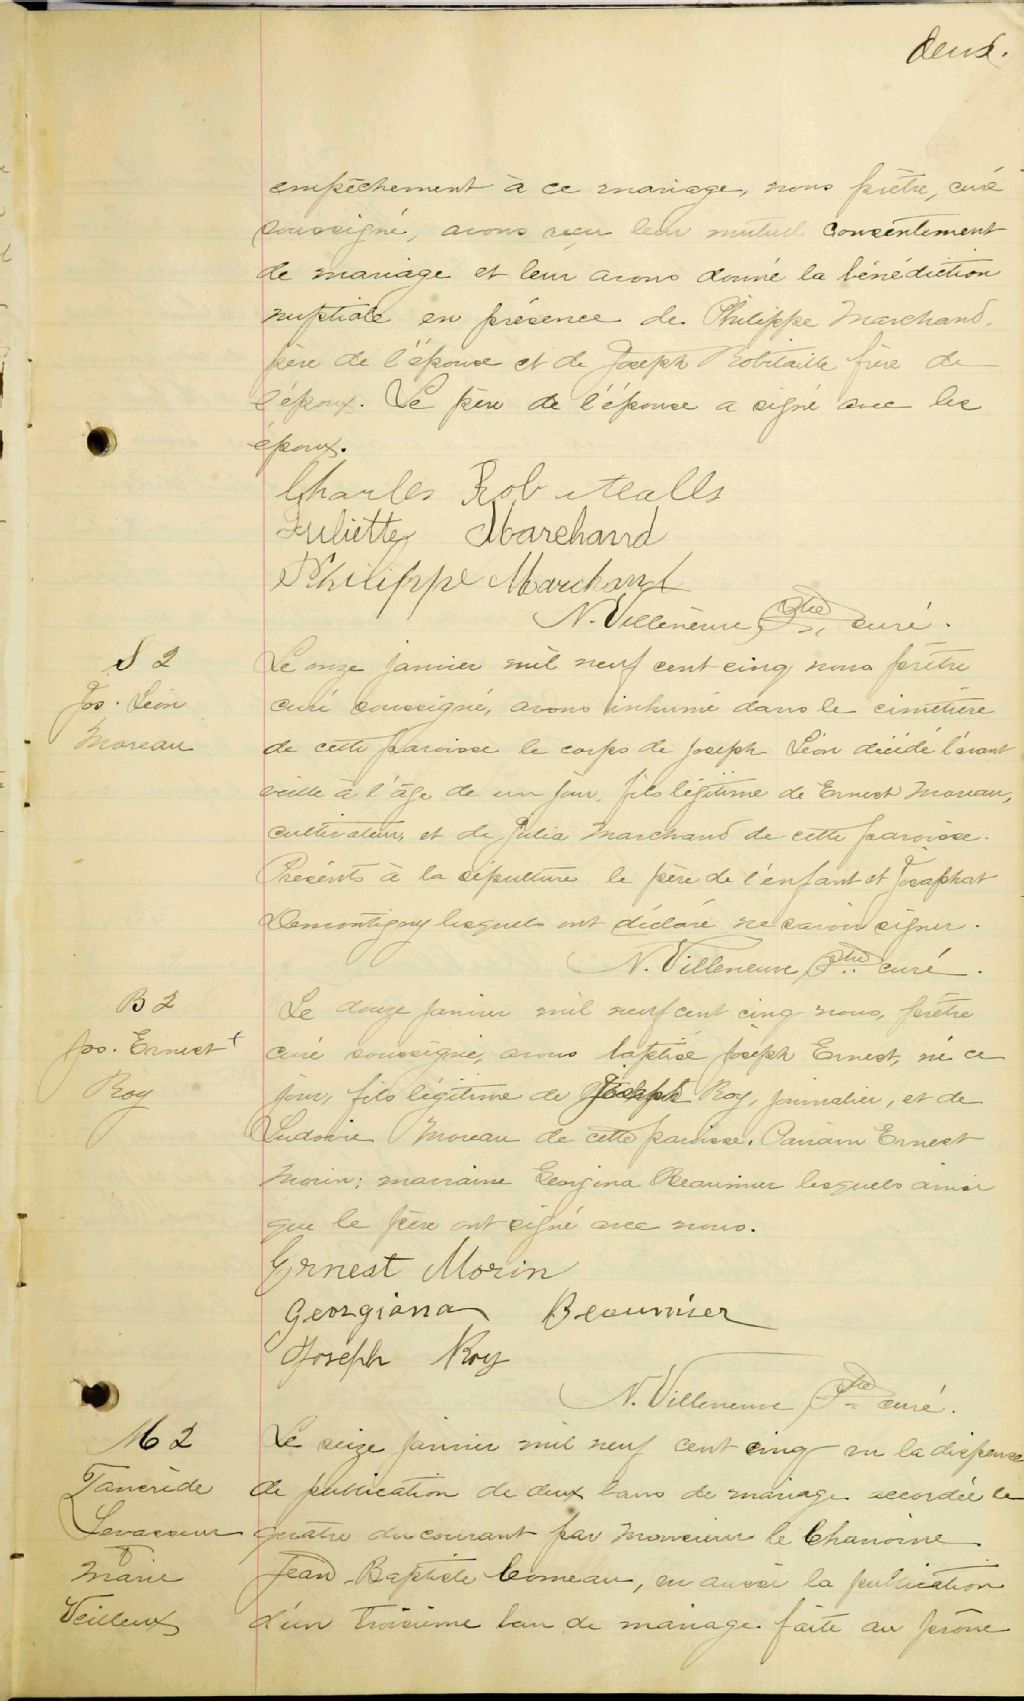 deux.
empêchement à ce mariage, nous prêtre, curé
soussigné, avons reçu leur mutuel consentement
de mariage et leur avons donné la bénédiction
nuptiale en présence de Philippe Marchand,
père de l'épouse et de Joseph Robitaille frère de
l'époux. Le père de l'épouse a signé avec les
époux.
Charles
Juliette Marchand
Philippe Marchand
N. Villeneuve Ptre, curé.
S 2
Jos. Léon
Moreau
Le onze janvier mil neuf cent cinq nous prêtre
curé soussigné, avons inhumé dans le cimetière
de cette paroisse le corps de Joseph Léon décédé l'avant
veille à l'âge de un jour, fils légitime de Ernest Moreau,
cultivateur, et de Julia Marchand de cette paroisse.
Présents à la sépulture le père de l'enfant et Josaphat
Demontigny lesquels ont déclaré ne savoir signer.
N. Villeneuve, Ptre curé.
B 2
Jos. Ernest
Roy
Le douze janvier mil neuf cent cinq nous, prêtre
curé soussigné, avons baptisé Joseph Ernest, né ce
jour, fils légitime de Joseph Roy, journalier, et de
Ludovie Moreau de cette paroisse. Parrain Ernest
Morin; marraine Georgina Beaumier lesquels ainsi
que le père ont signé avec nous.
Ernest Morin
Georgiana Beaumier
Joseph Roy
N. Villeneuve, Ptre curé.
M 2
Tancrède
Levasseur
&
Marie
Veilleux
Le seize janvier mil neuf cent cinq vu la dispense
de publication de deux bans de mariage accordée le
quatre du courant par Monsieur le Chanoine
Jean-Baptiste Comeau, vu aussi la publication
d'un troisième ban de mariage faite au prône